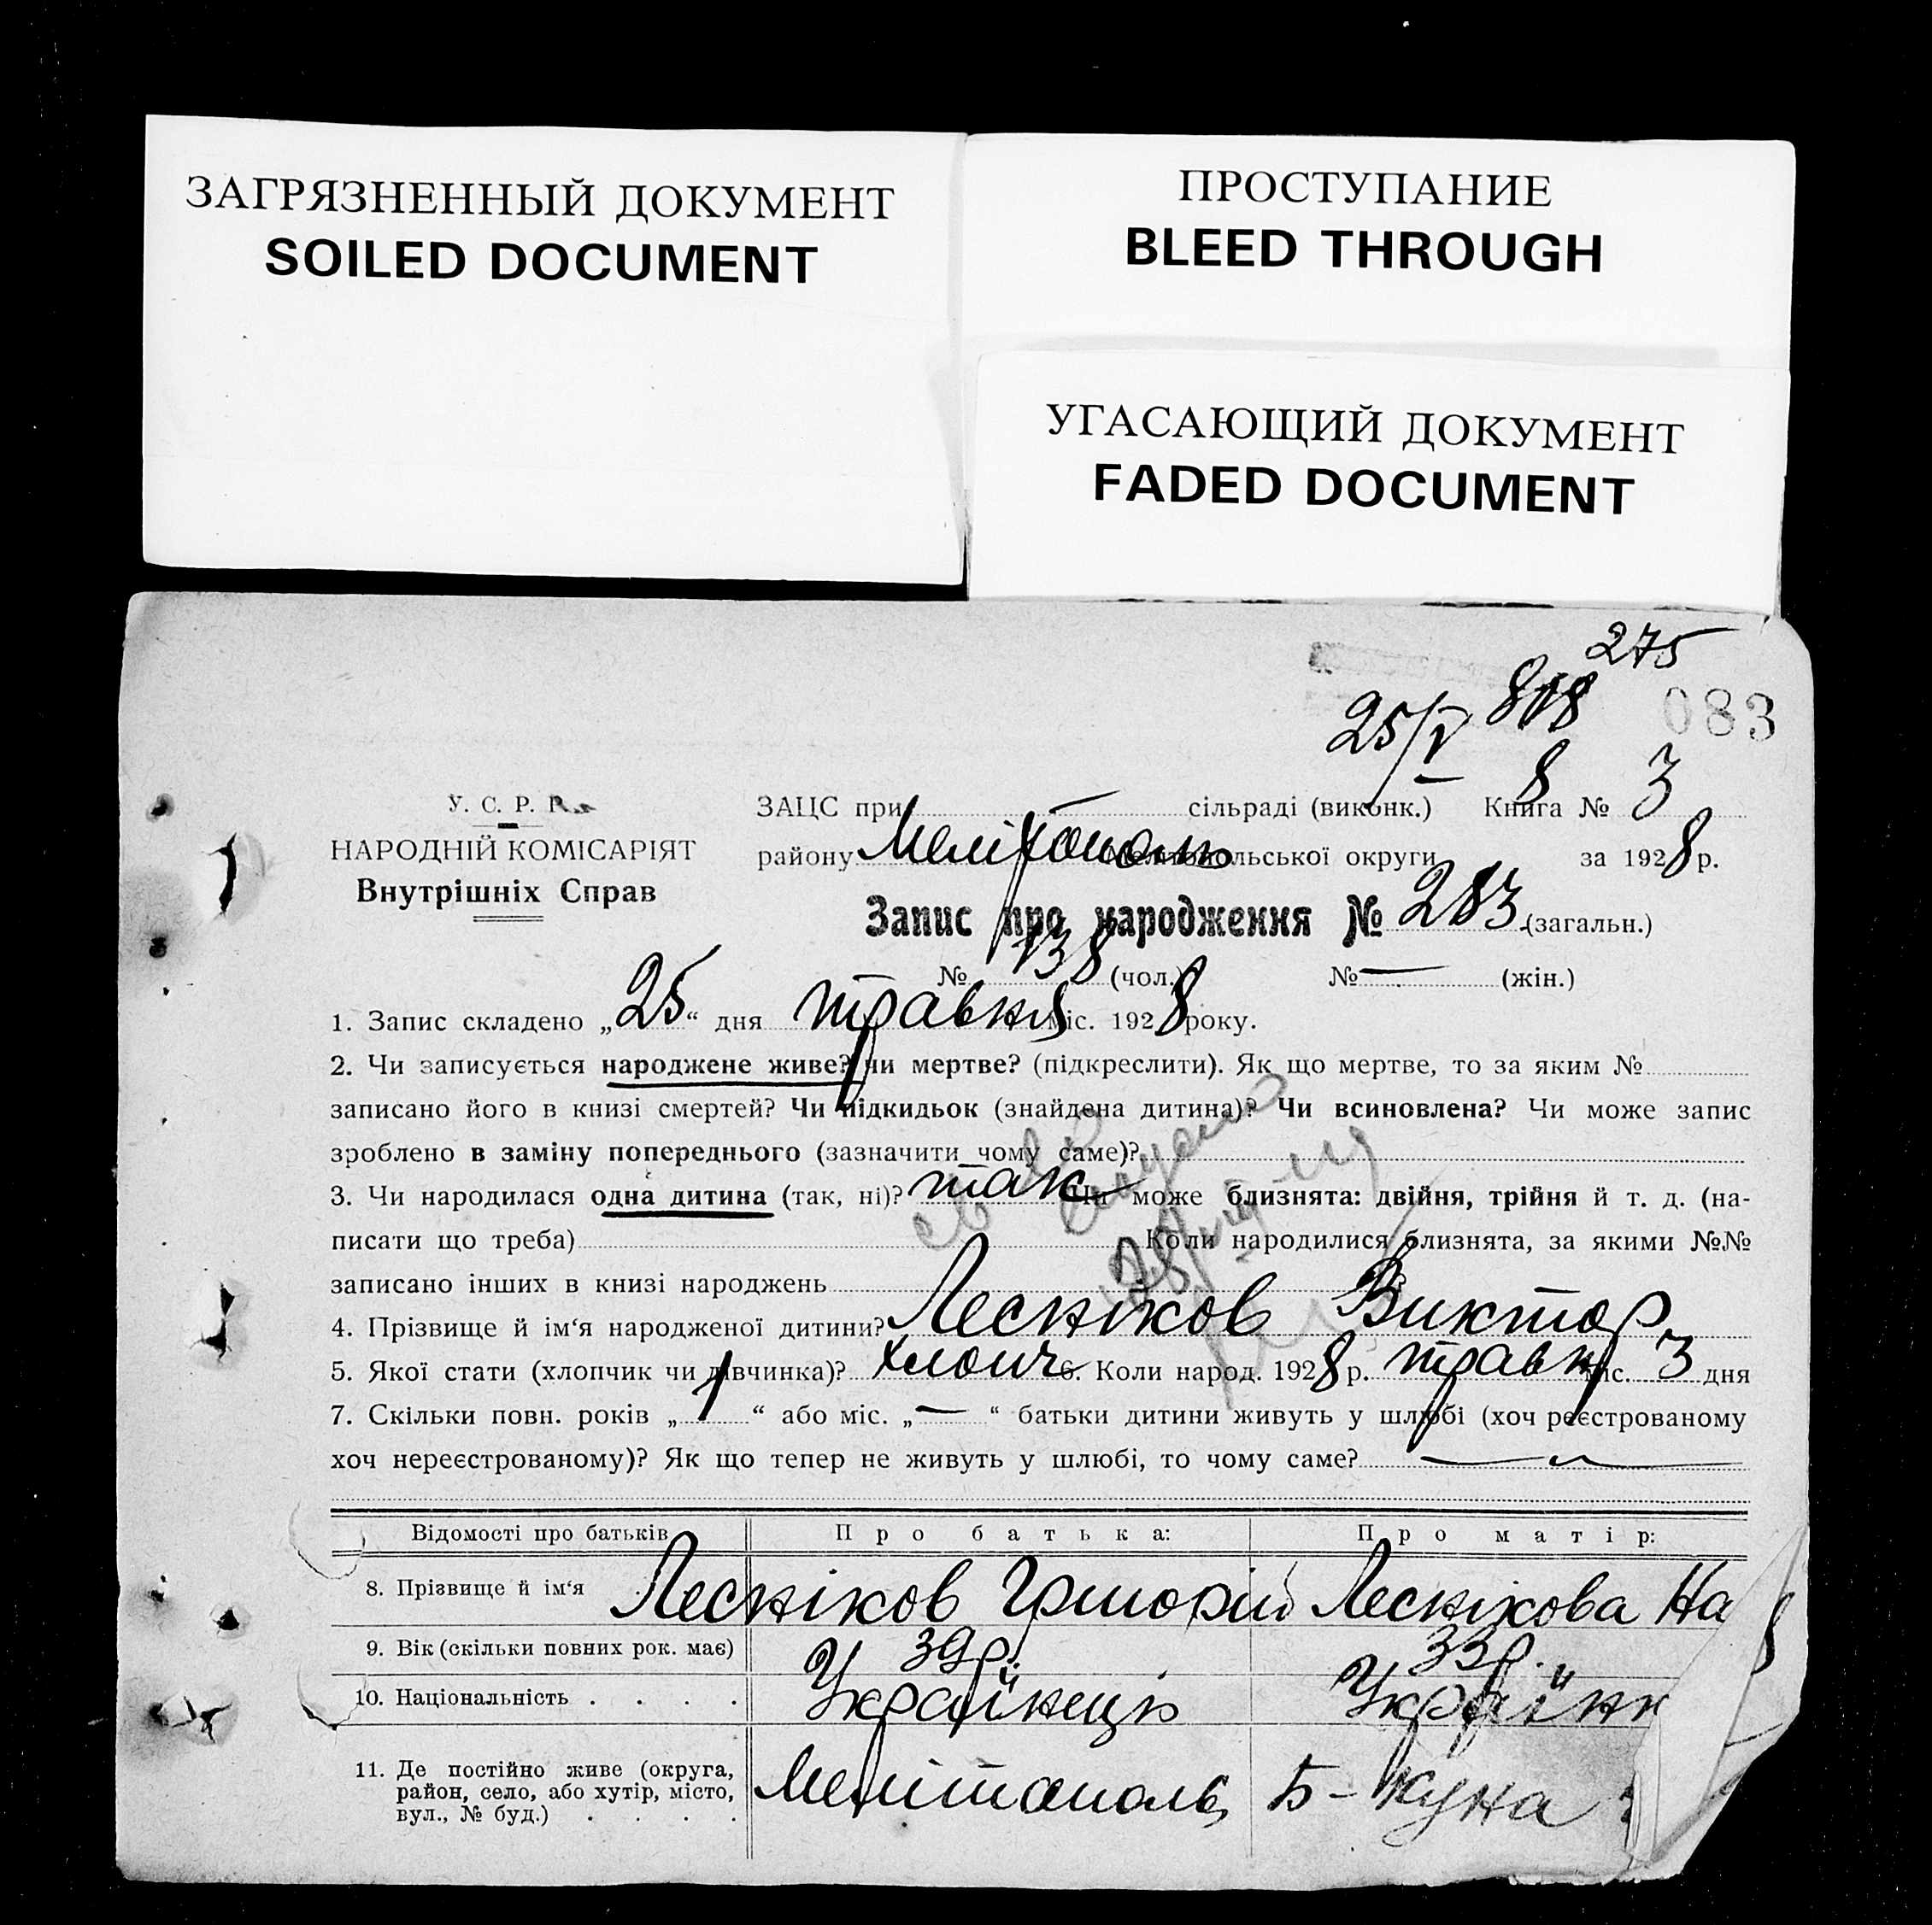 ЗАГРЯЗНЕННЫЙ ДОКУМЕНТ
SOILED DOCUMENT
ПРОСТУПАНИЕ
BLEED THROUGH
УГАСАЮЩИЙ ДОКУМЕНТ
FADED DOCUMENT
275
25/V 8
083
У. С. Р. Р.
НАРОДНІЙ КОМІСАРІЯТ
Внутрішніх Справ
ЗАЦС при — сільраді (виконк.) Книга № 3
району Меліtополь Мелітопольської округи за 1928 р.
Запис про народження № 283 (загальн.)
№ 138 (чол.) № — (жін.)
1. Запис складено „25“ дня травня міс. 1928 року.
2. Чи записується народжене живе? чи мертве? (підкреслити). Як що мертве, то за яким №
записано його в книзі смертей? Чи підкидьок (знайдена дитина)? Чи всиновлена? Чи може запис
зроблено в заміну попереднього (зазначити чому саме)?
3. Чи народилася одна дитина (так, ні)? так Чи може близнята: двійня, трійня й т. д. (на-
писати що треба) Коли народилися близнята, за якими №№
записано інших в книзі народжень
4. Прізвище й ім‘я народженої дитини? Лесніков Виктор
5. Якої стати (хлопчик чи дівчинка)? хлопч 6. Коли народ. 1928 р. травня міс. 3 дня
7. Скільки повн. років „1“ або міс. „—“ батьки дитини живуть у шлюбі (хоч реєстрованому
хоч нереєстрованому)? Як що тепер не живуть у шлюбі, то чому саме?
Відомості про батьків Про батька: Про матір:
8. Прізвище й ім‘я Лесніков Григорій Леснікова На
9. Вік (скільки повних рок. має) 39 р. 33 р.
10. Національність . . . . Українець Українк
11. Де постійно живе (округа,
район, село, або хутір, місто,
вул., № буд.) . . . . Мелітополь, Б-Куна